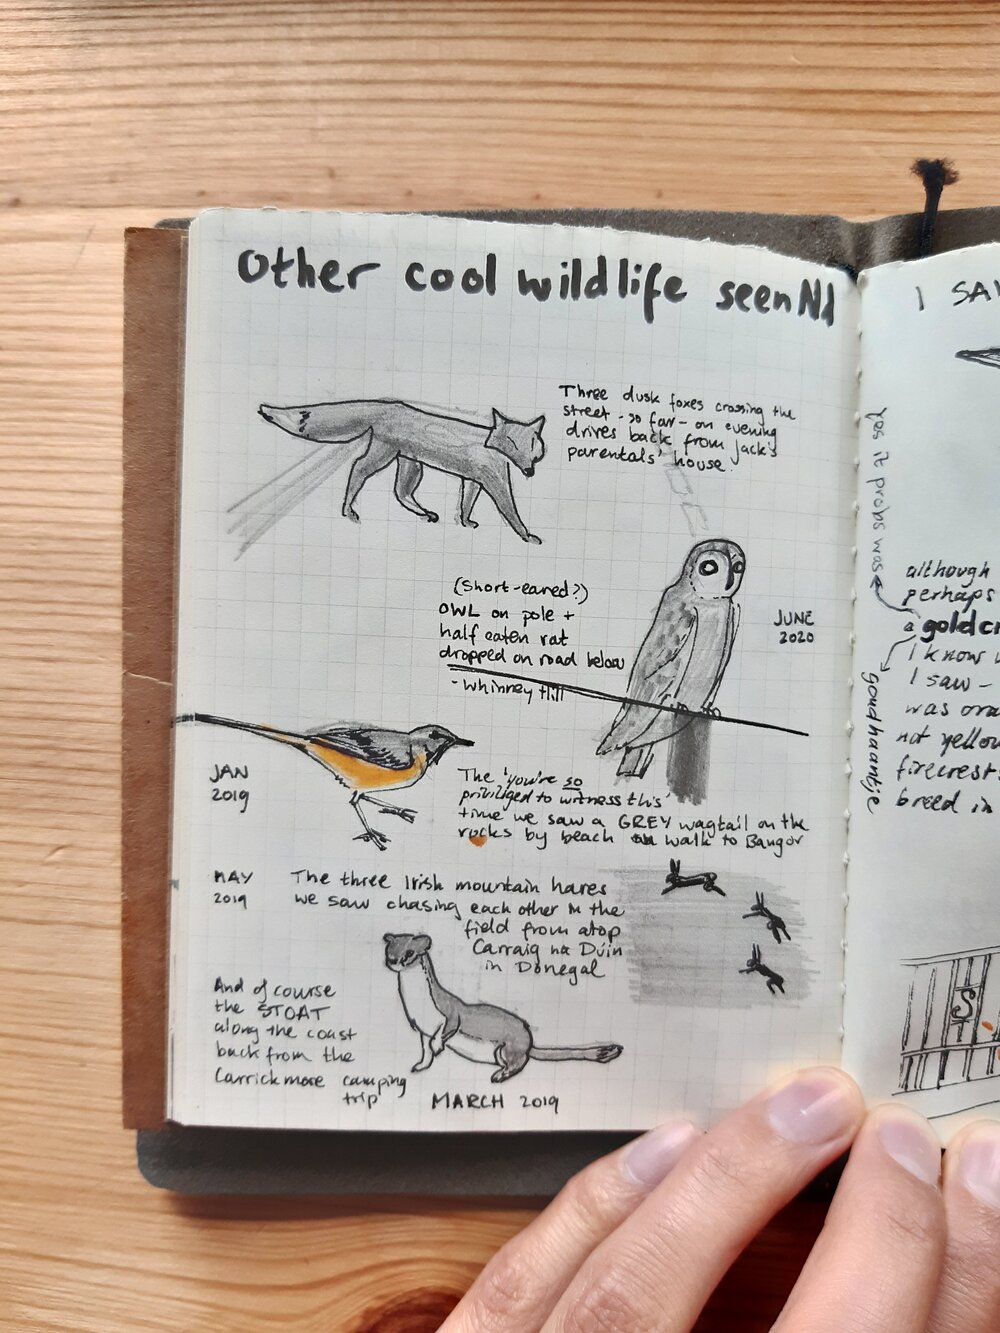 Other cool wildlife seen NI
Three dusk foxes crossing the
street - so far - on evening
drives back from Jack's
parentals' house.
(Short-eared?)
OWL on pole +
half eaten rat
dropped on road below
- Whinney Hill
JUNE
2020
JAN
2019
The 'you're so
priviliged to witness this'
time we saw a GREY wagtail on the
rocks by beach walk to Bangor
MAY
2019
The three Irish mountain hares
we saw chasing each other in the
field from atop
Carraig na Dúin
in Donegal
And of course
the STOAT
along the coast
back from the
Carrickmore camping
trip
MARCH 2019
I SAW
yes it probs was
although
perhaps
a goldcr
I know
I saw -
was ora
not yellow
firecrests
breed in
goudhaantje
S